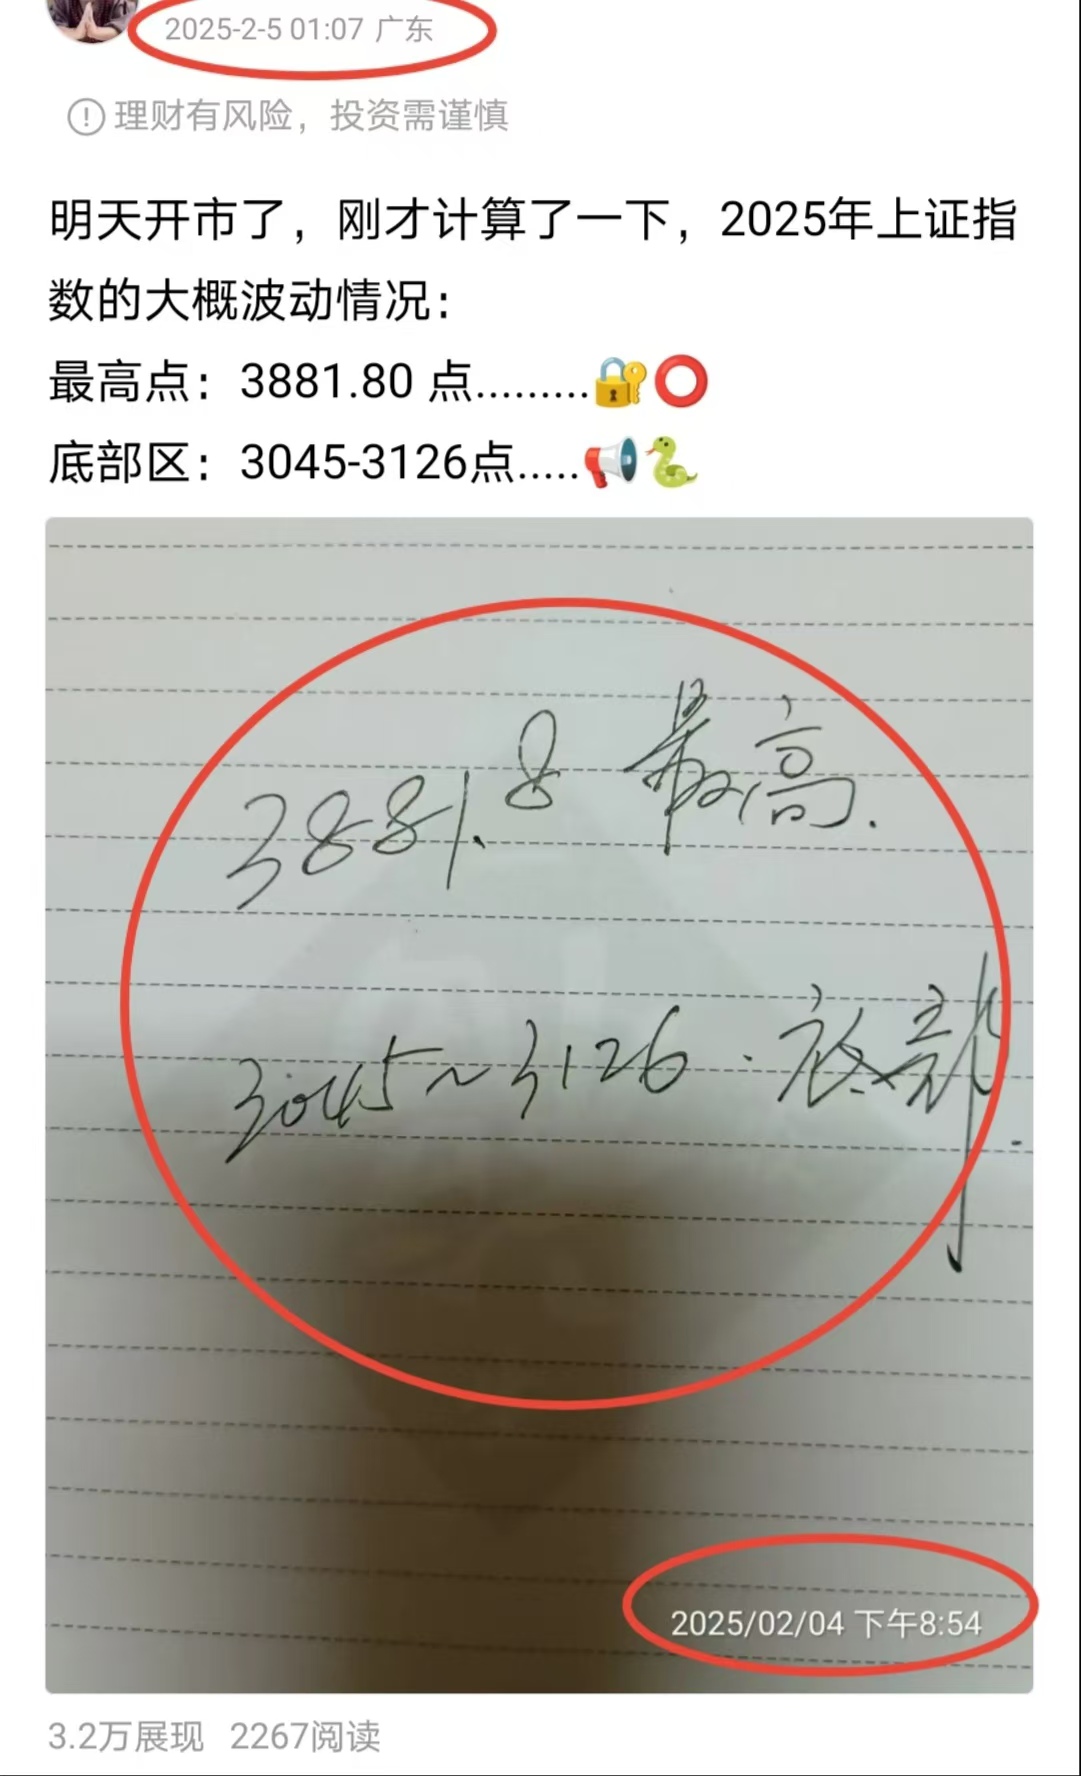 2025-2-5 01:07 广东
理财有风险，投资需谨慎
明天开市了，刚才计算了一下，2025年上证指
数的大概波动情况：
最高点：3881.80 点.........🔐⭕
底部区：3045-3126点.....📢🐍
3881.8 最高.
3045~3126. 底部.
2025/02/04 下午8:54
3.2万展现 2267阅读